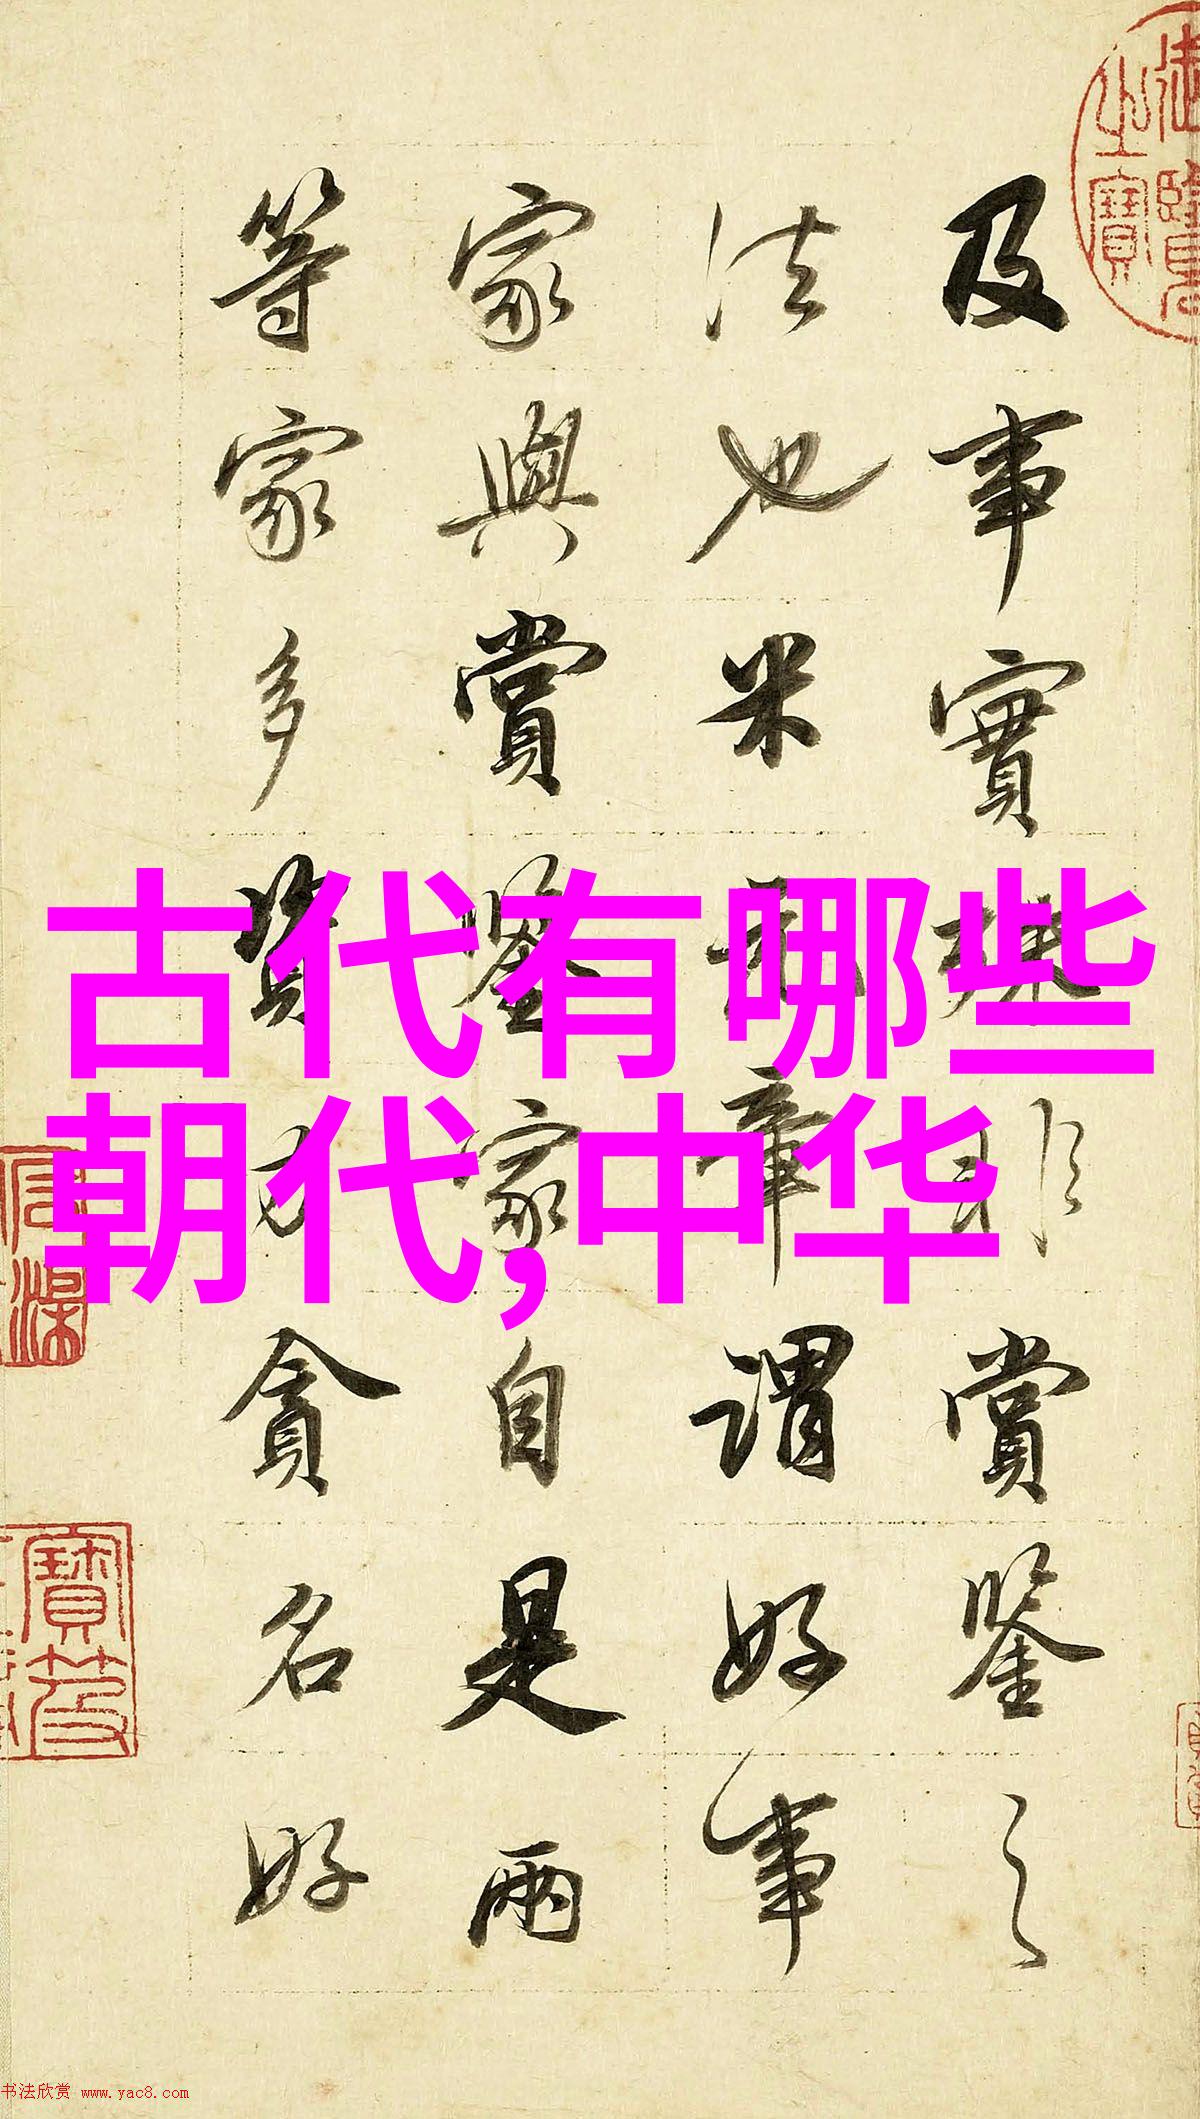 古代有哪些
朝代,中华
及事實殊非賞鑒之
法也米元章謂好事
家與賞鑒家自是兩
等家多資力貪名好
书法欣赏 www.yac8.com